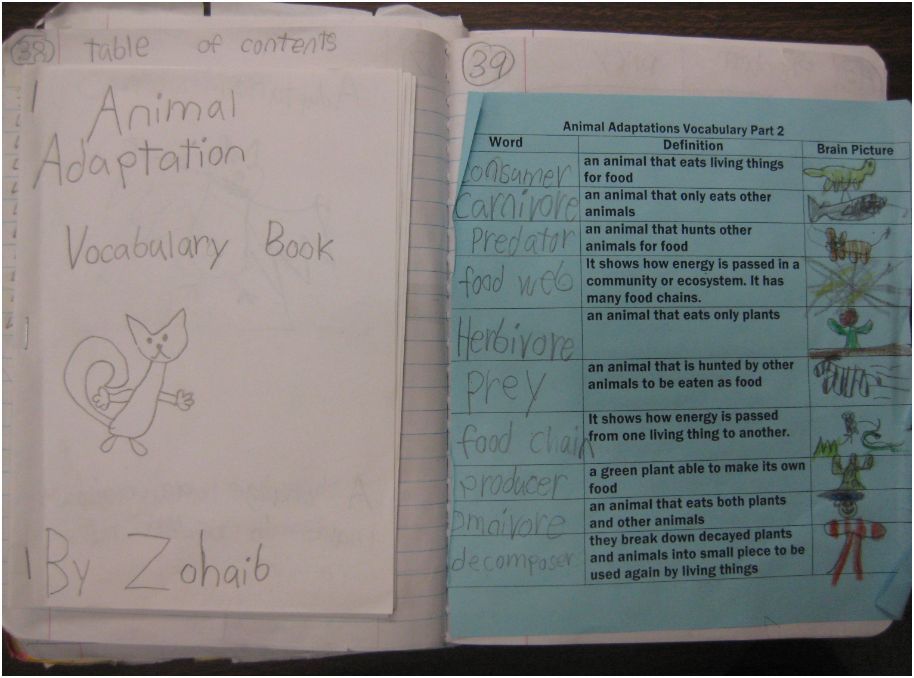 38 table of contents
Animal
Adaptation
Vocabulary Book
By Zohaib
39
Animal Adaptations Vocabulary Part 2
Word Definition Brain Picture
consumer an animal that eats living things
for food
Carnivore an animal that only eats other
animals
Predator an animal that hunts other
animals for food
food web It shows how energy is passed in a
community or ecosystem. It has
many food chains.
Herbivore an animal that eats only plants
prey an animal that is hunted by other
animals to be eaten as food
food chain It shows how energy is passed
from one living thing to another.
producer a green plant able to make its own
food
omnivore an animal that eats both plants
and other animals
decomposer they break down decayed plants
and animals into small piece to be
used again by living things